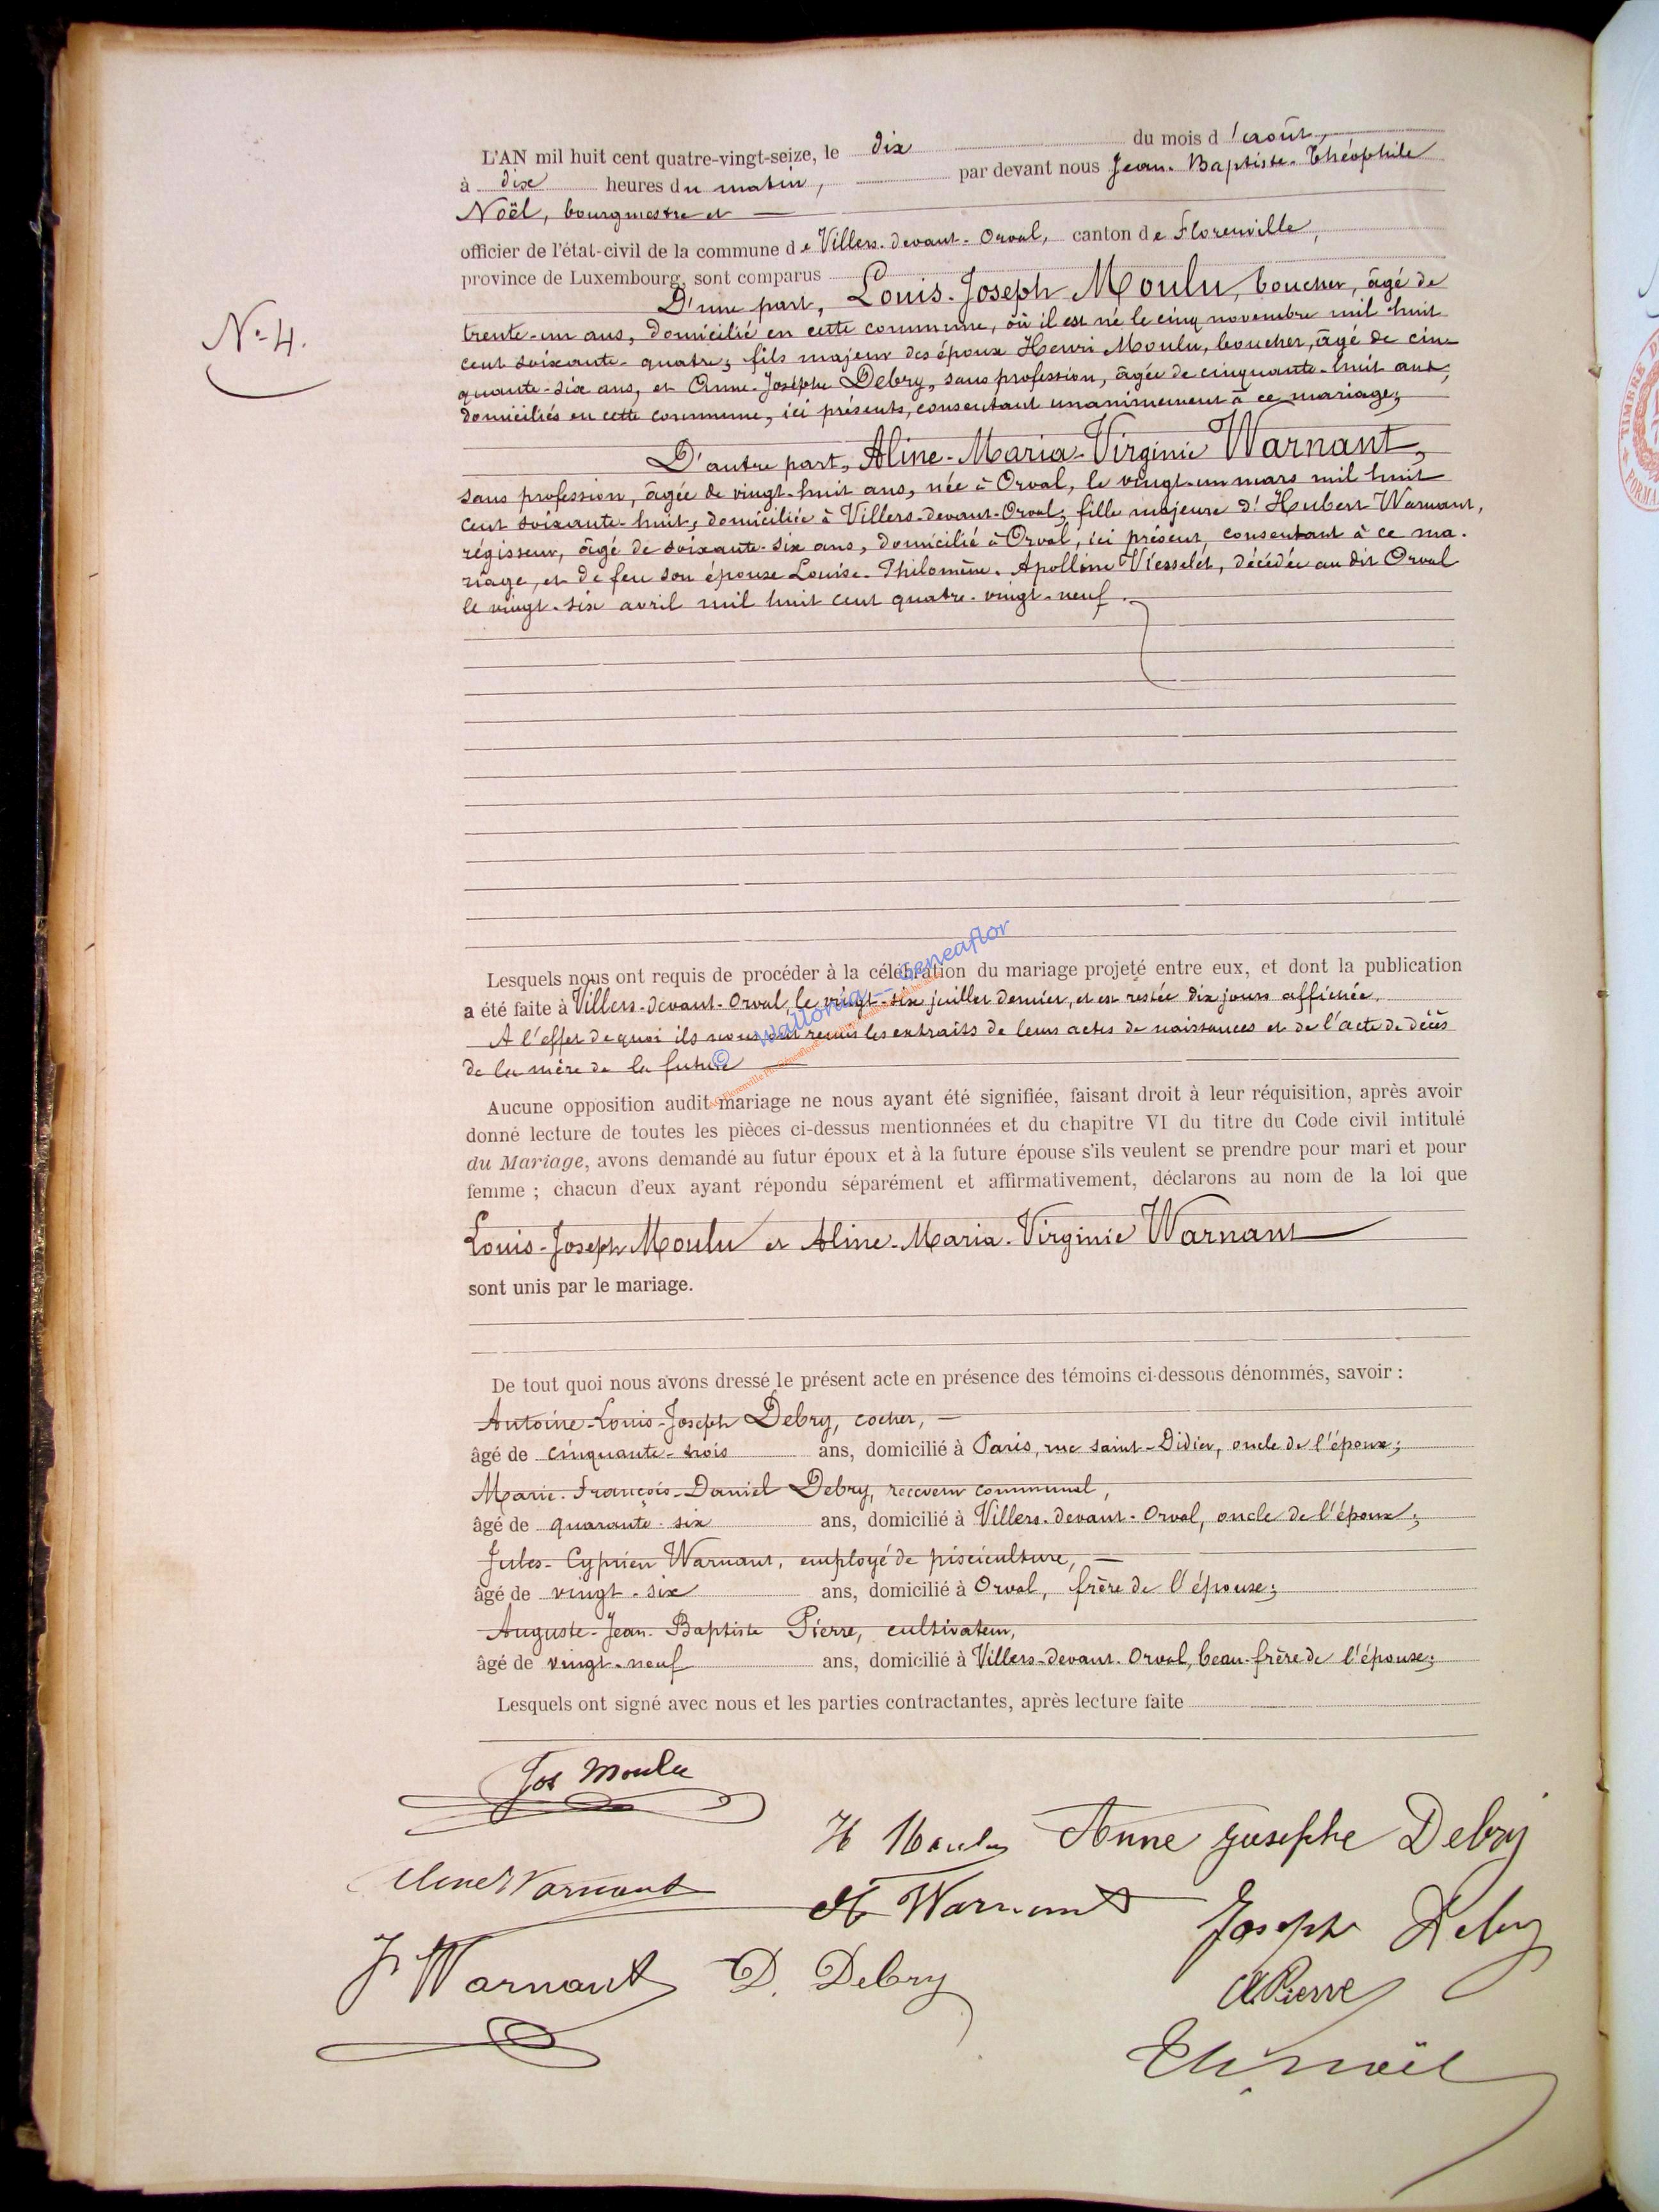 L'AN mil huit cent quatre-vingt-seize, le dix du mois d'août,
à dix heures du matin, par devant nous Jean-Baptiste-Théophile
Noël, bourgmestre et
officier de l'état-civil de la commune de Villers-devant-Orval, canton de Florenville,
province de Luxembourg, sont comparus
D'une part, Louis-Joseph Moulu, boucher, âgé de
trente-un ans, domicilié en cette commune, où il est né le cinq novembre mil huit
cent soixante-quatre; fils majeur des époux Henri Moulu, boucher, âgé de cin-
quante-six ans, et Anne-Josèphe Debry, sans profession, âgée de cinquante-huit ans,
domiciliés en cette commune, ici présents, consentant unanimement à ce mariage;
D'autre part, Aline-Maria-Virginie Warnant,
sans profession, âgée de vingt-huit ans, née à Orval, le vingt-un mars mil huit
cent soixante-huit, domiciliée à Villers-devant-Orval; fille majeure d'Hubert Warnant,
régisseur, âgé de soixante-six ans, domicilié à Orval, ici présent, consentant à ce ma-
riage, et de feu son épouse Louise-Philomène-Apolline Viesselet, décédée au dit Orval
le vingt-six avril mil huit cent quatre-vingt-neuf.
N° 4.
Lesquels nous ont requis de procéder à la célébration du mariage projeté entre eux, et dont la publication
a été faite à Villers-devant-Orval, le vingt-six juillet dernier, et est restée dix jours affichée.
A l'effet de quoi ils nous ont remis les extraits de leurs actes de naissances et de l'acte de décès
de la mère de la future
© Wallonia - Geneaflor
Aucune opposition audit mariage ne nous ayant été signifiée, faisant droit à leur réquisition, après avoir
donné lecture de toutes les pièces ci-dessus mentionnées et du chapitre VI du titre du Code civil intitulé
du Mariage, avons demandé au futur époux et à la future épouse s'ils veulent se prendre pour mari et pour
femme ; chacun d'eux ayant répondu séparément et affirmativement, déclarons au nom de la loi que
Louis-Joseph Moulu et Aline-Maria-Virginie Warnant
sont unis par le mariage.
De tout quoi nous avons dressé le présent acte en présence des témoins ci-dessous dénommés, savoir :
Antoine-Louis-Joseph Debry, cocher,
âgé de cinquante-trois ans, domicilié à Paris, rue Saint-Didier, oncle de l'époux;
Marie-François-Daniel Debry, receveur communal,
âgé de quarante-six ans, domicilié à Villers-devant-Orval, oncle de l'époux;
Jules-Cyprien Warnant, employé de pisciculture,
âgé de vingt-six ans, domicilié à Orval, frère de l'épouse;
Auguste-Jean-Baptiste Pierre, cultivateur,
âgé de vingt-neuf ans, domicilié à Villers-devant-Orval, beau-frère de l'épouse;
Lesquels ont signé avec nous et les parties contractantes, après lecture faite
Jos Moulu
H Moulu Anne Josephe Debry
Aline Warnant
H Warnant Joseph Debry
J Warnant D. Debry
A. Pierre
Th. Noël